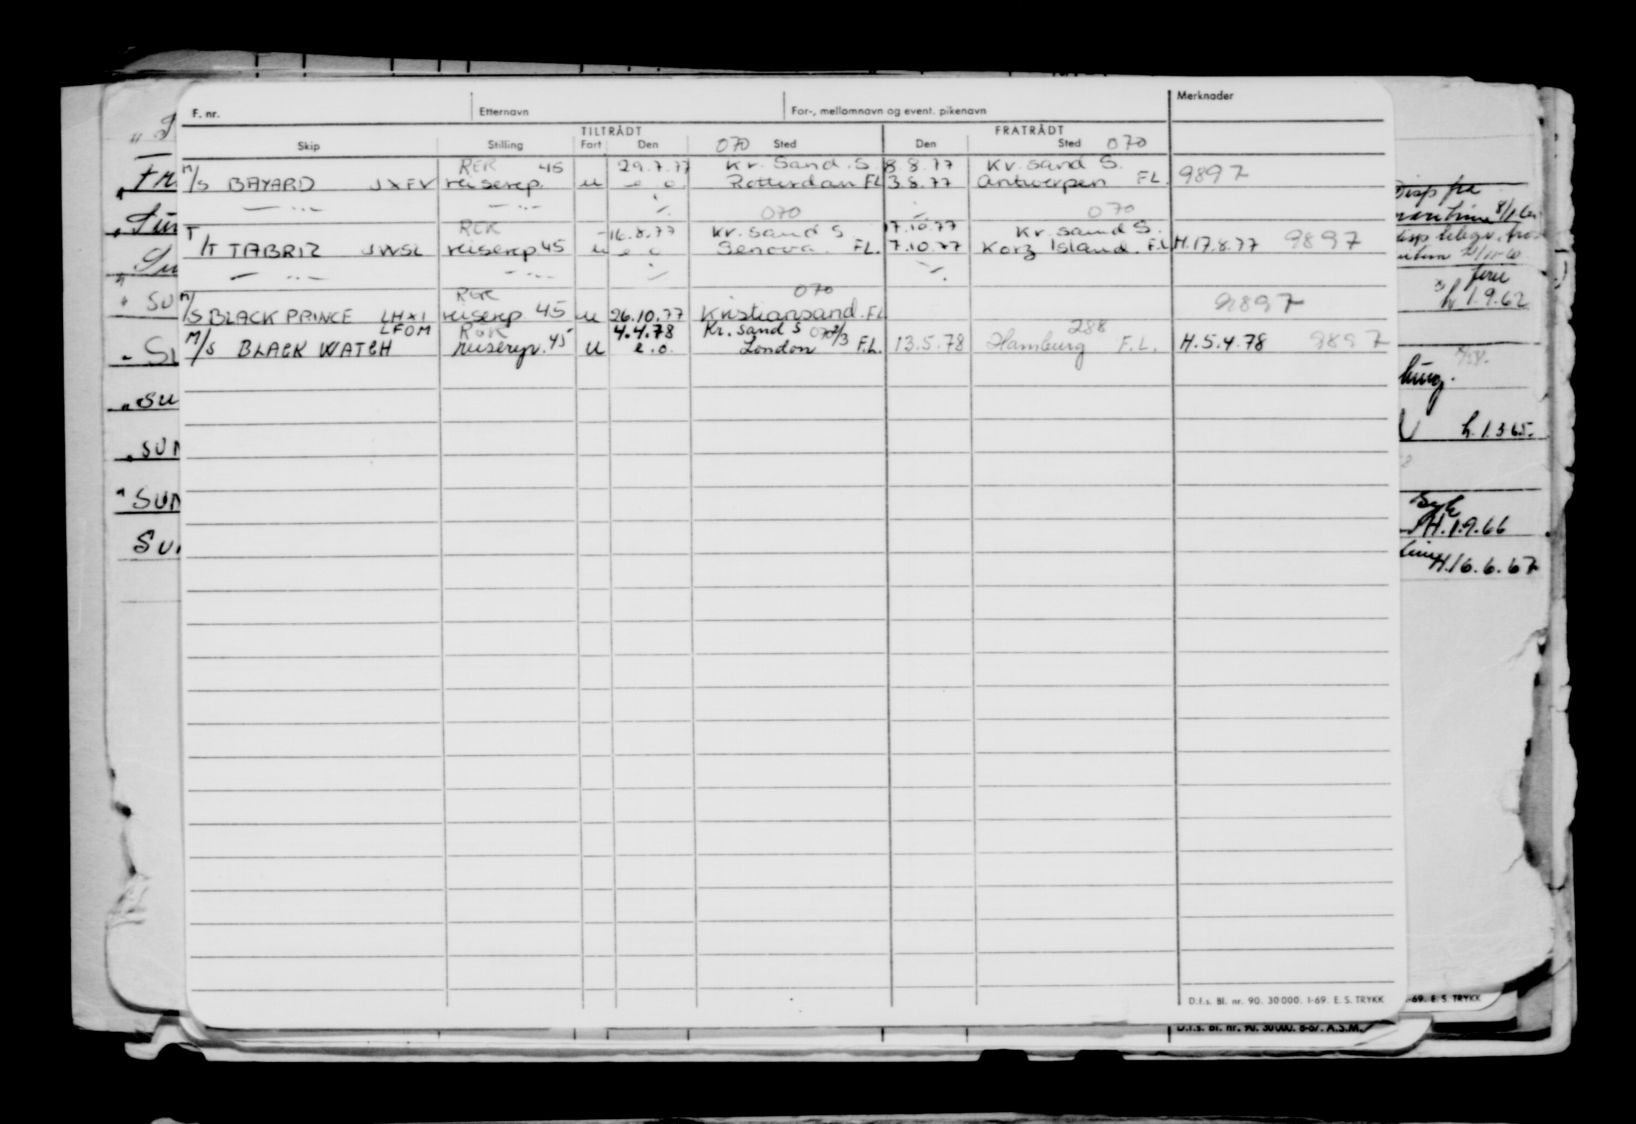 F. nr. Etternavn For-, mellomnavn og event. pikenavn Merknader
TILTRÅDT FRATRÅDT
Skip Stilling Fart Den 070 Sted Den Sted 070
RER 45 29.7.77 Kr. Sand. S. 8.8.77 Kr. Sand S. 9897
M/S BAYARD JXFV reiserep. u e o. Rotterdam FL 3.8.77 Antwerpen FL.
— " — — " — ./. 070 ./. 070
RER 16.8.77 Kr. Sand S 17.10.77 Kr. Sand S.
T/T TABRIZ JWSL reiserep 45 u e o Genova. FL. 7.10.77 Korg Island. F.L H.17.8.77 9897
— " — — " — ./. ./.
RER 070
M/S BLACK PRINCE LHXI reiserep 45 u 26.10.77 Kristiansand. FL 9897
LFOM RER 4.4.78 Kr. Sand S 070 288
M/S BLACK WATCH reiserep. 45 u e.o. London F.L. 13.5.78 Hamburg F.L. H.5.4.78 9897
D.f.s. Bl. nr. 90. 30 000. 1-69. E. S. TRYKK
-69. E. S. TRYKK
D.f.s. Bl. nr. 90. 30 000. 6-67. A.S.M.
SU
SUN
SUN
Su
Disp fra
h. 1.9.62
h. 1.3.65.
Syk
H.1.9.66
H.16.6.67